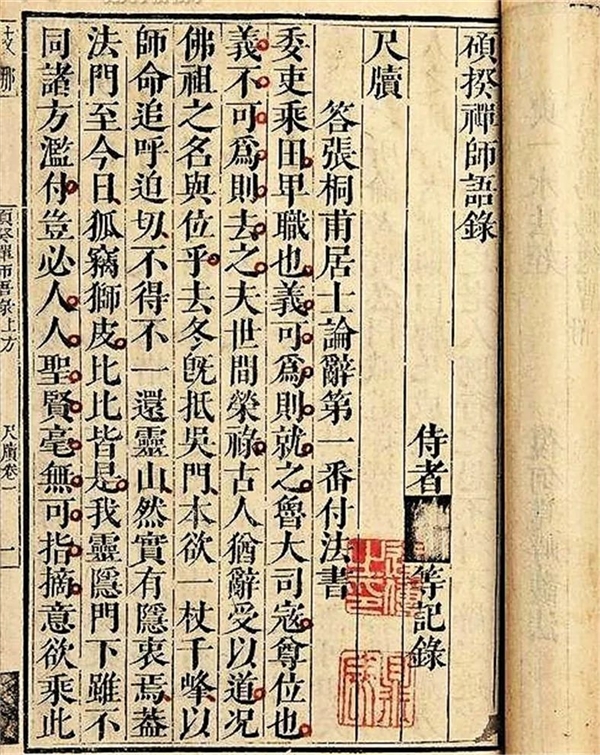 碩揆禪師語錄
侍者
等記錄
尺牘
答張桐甫居士論辭第一番付法書
委吏乘田卑職也義可為則就之魯大司宼尊位也
義不可為則去之夫世間榮祿古人猶辭受以道况
佛祖之名與位乎去冬旣抵吳門本欲一杖千峰以
師命追呼迫切不得不一還靈山然實有隱衷焉葢
法門至今日狐竊獅皮比比皆是我靈隱門下雖不
同諸方濫付豈必人人聖賢毫無可指摘意欲乘此
碩揆禪師語錄上方
尺牘卷一
一